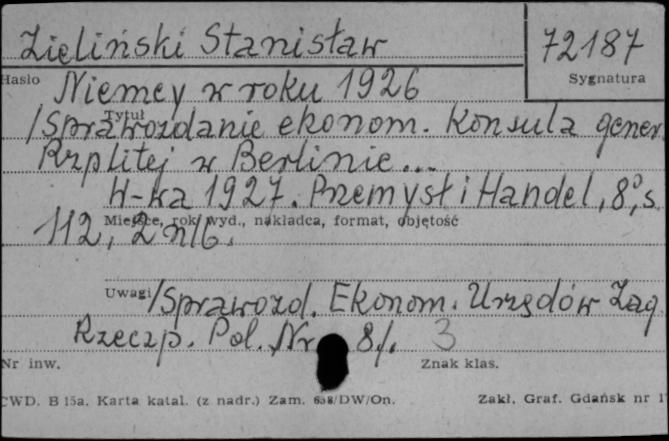 Zieliński Stanisław
72187
Hasło
Sygnatura
Niemcy w roku 1926
Tytuł
/Sprawozdanie ekonom. Konsula gener.
Rzplitej w Berlinie...
W-wa 1927. Przemysł i Handel, 8°, s.
Miejsce, rok wyd., nakładca, format, objętość
112, 2 nlb.
Uwagi
/Sprawozd. Ekonom. Urzędów Zag.
Rzeczp. Pol. Nr 8/. 3
Nr inw.
Znak klas.
CWD. B 15a. Karta katal. (z nadr.) Zam. 658/DW/On.
Zakł. Graf. Gdańsk nr 1